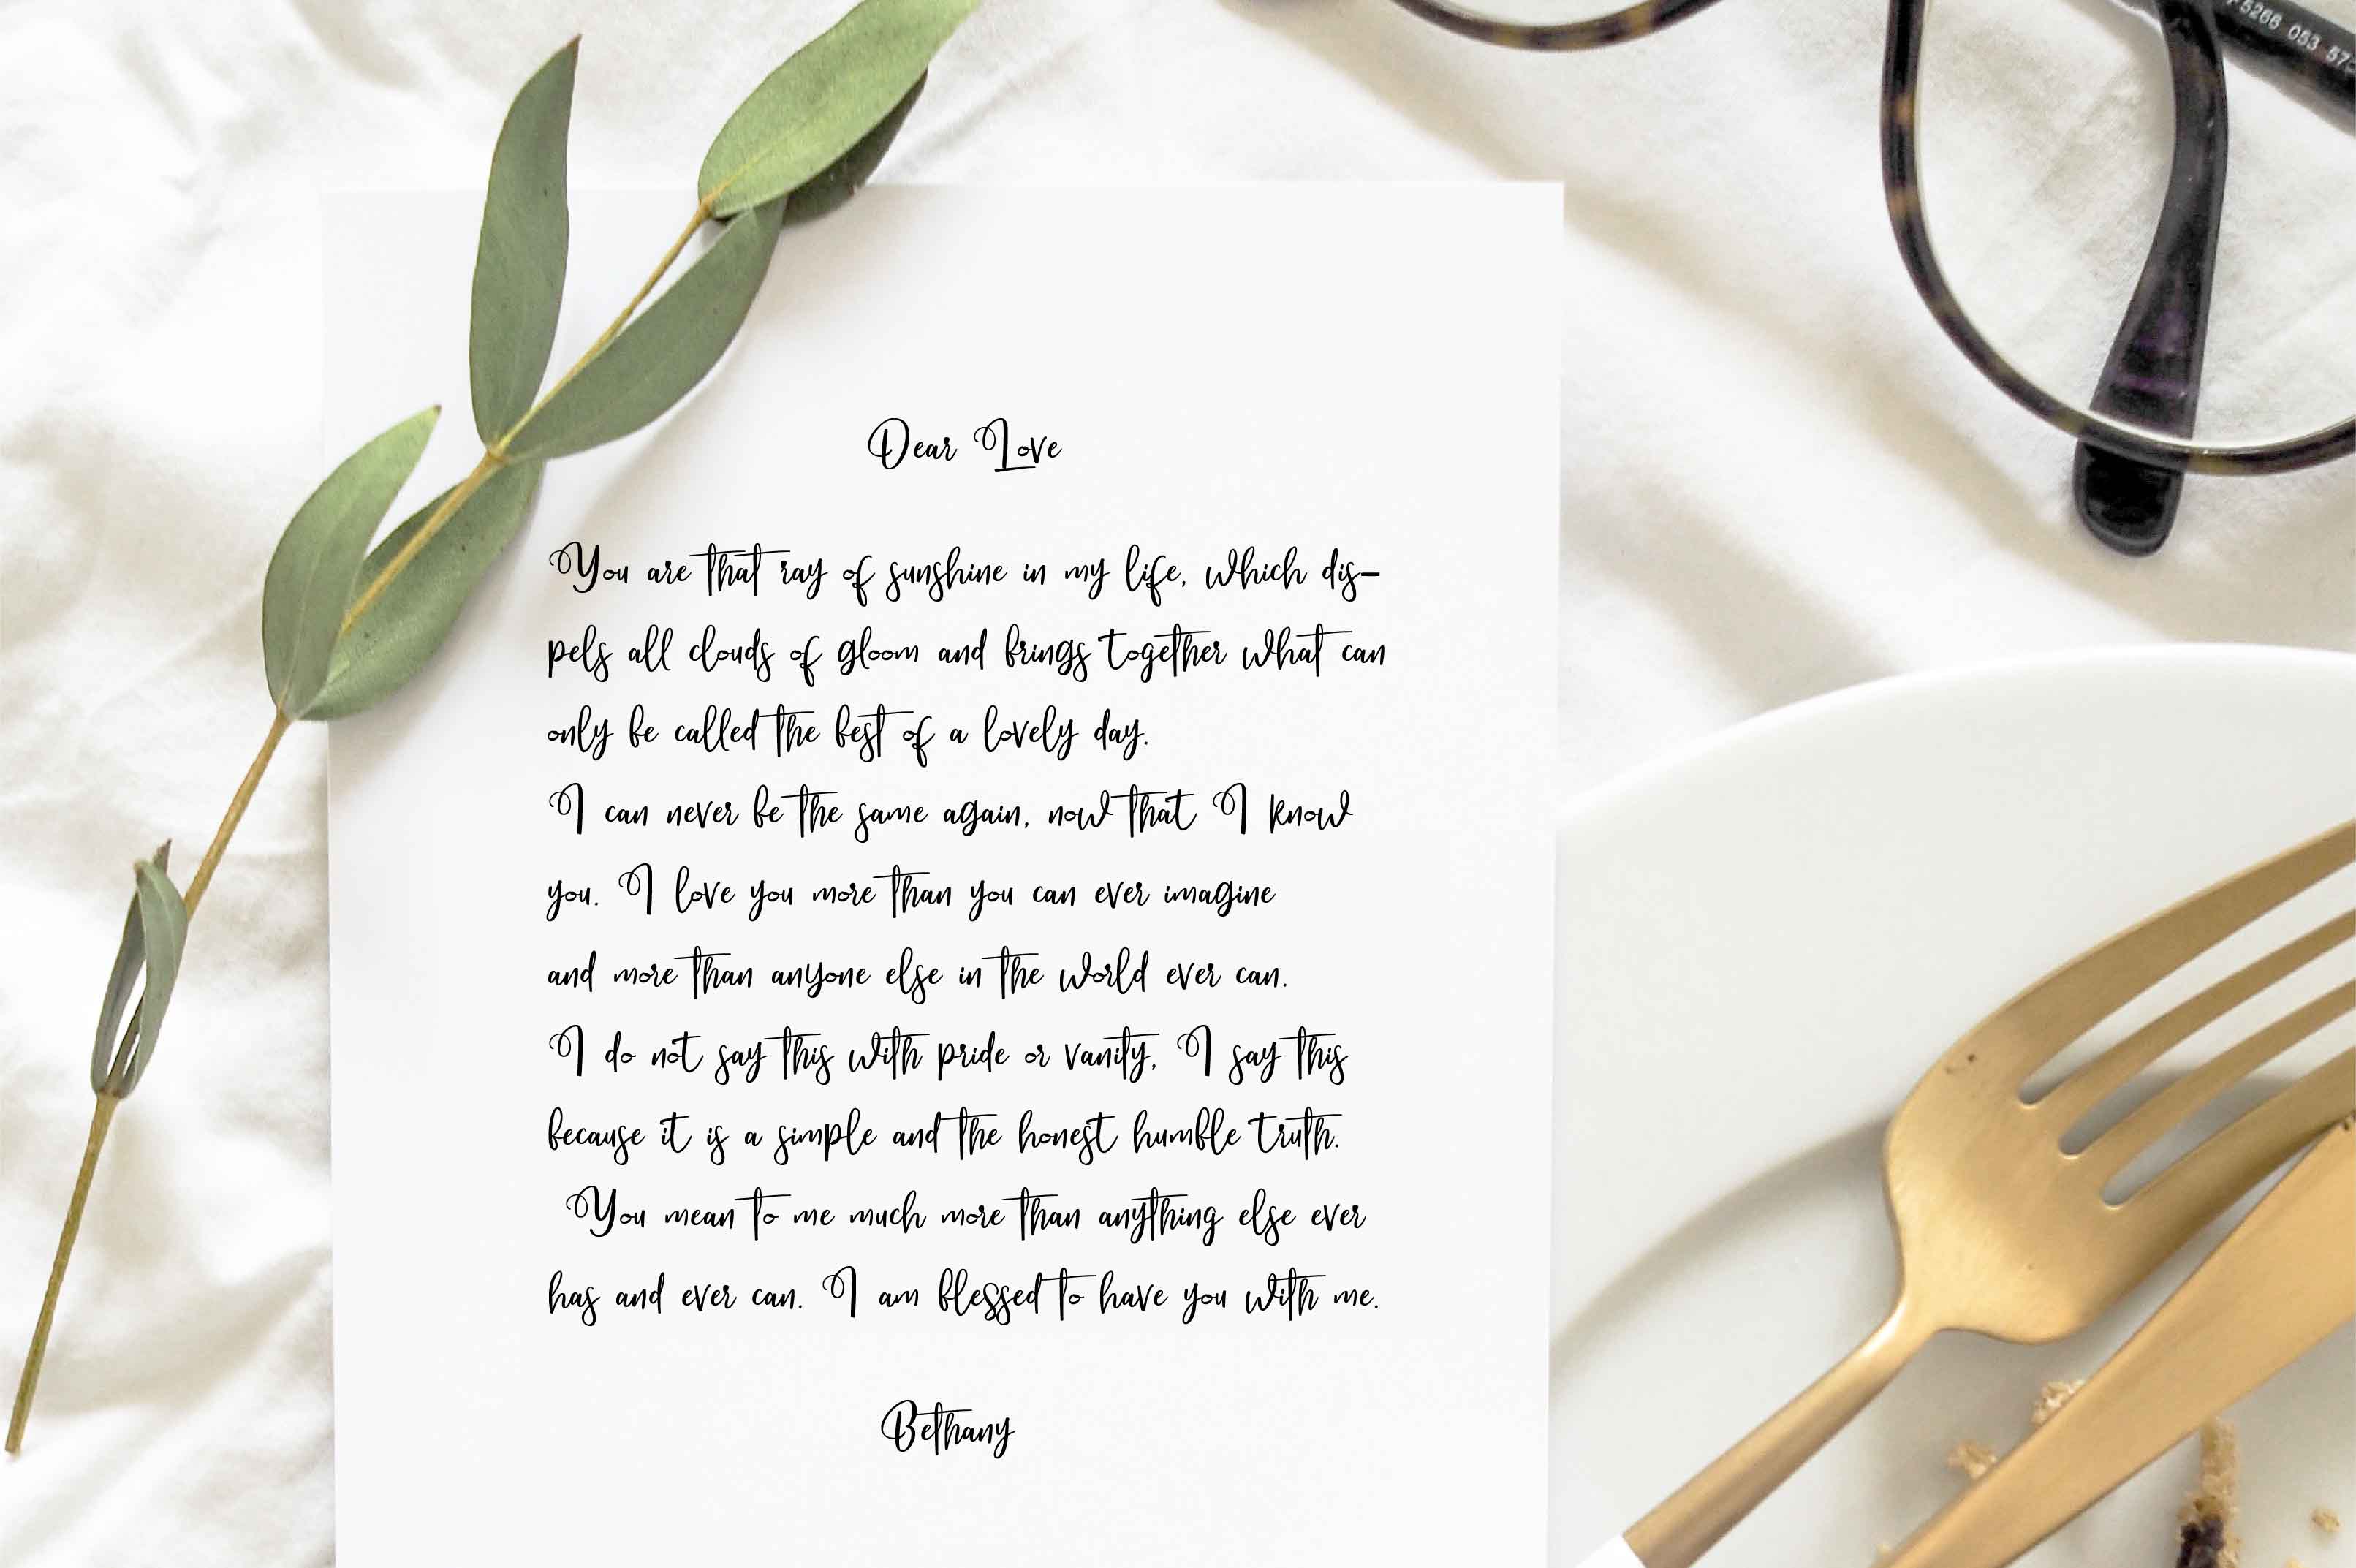 5266 053 57
Dear Love
You are that ray of sunshine in my life, which dis-
pels all clouds of gloom and brings together what can
only be called the best of a lovely day.
I can never be the same again, now that I know
you. I love you more than you can ever imagine
and more than anyone else in the world ever can.
I do not say this with pride or vanity, I say this
because it is a simple and the honest humble truth.
You mean to me much more than anything else ever
has and ever can. I am blessed to have you with me.
Bethany